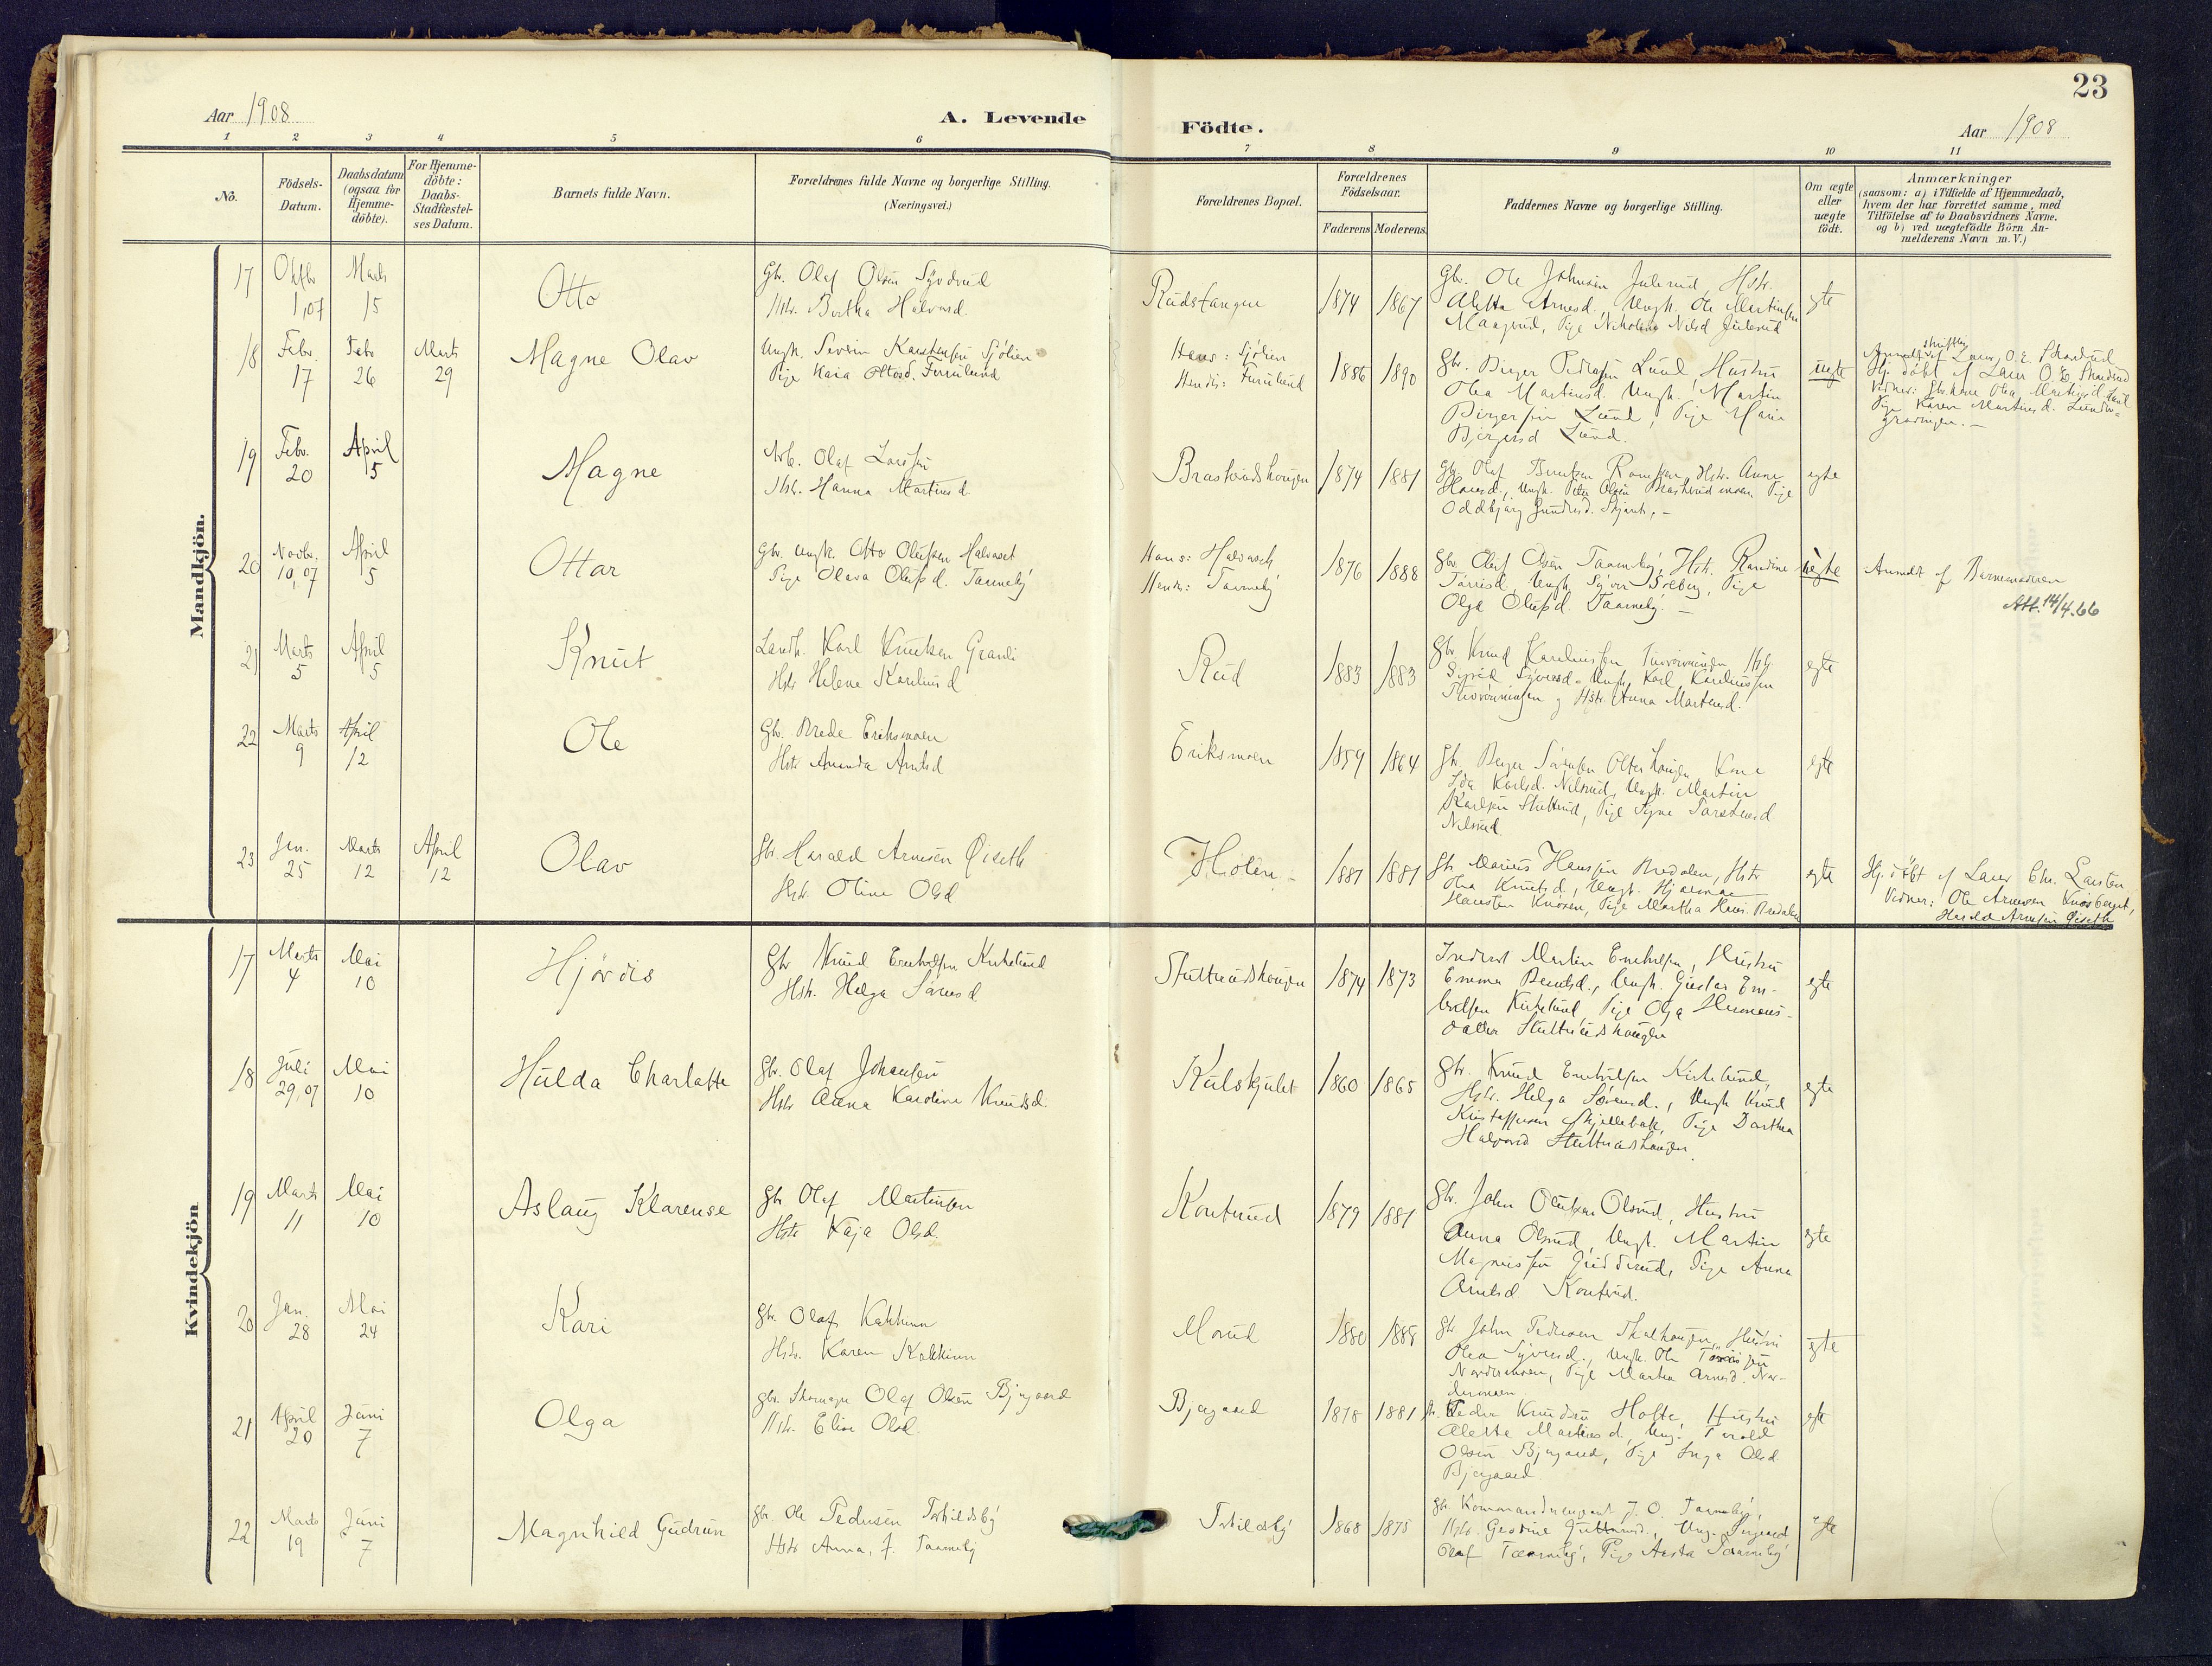 23
Aar 1908
A. Levende
Födte.
Aar 1908
1 2 3 4 5 6 7 8 9 10 11
No.
Födsels-
Datum.
Daabsdatum
(ogsaa for
Hjemme-
döbte).
For Hjemme-
döbte:
Daabs-
Stadfæstel-
ses Datum.
Barnets fulde Navn.
Forældrenes fulde Navne og borgerlige Stilling.
(Næringsvei.)
Forældrenes Bopæl.
Forældrenes
Födselsaar.
Faderens
Moderens
Faddernes Navne og borgerlige Stilling.
Om ægte
eller
uægte
födt.
Anmærkninger
(saasom: a) i Tilfælde af Hjemmedaab,
hvem der har forrettet samme, med
Tilföielse af to Daabsvidners Navne.
og b) ved uægtefödte Börn An-
melderens Navn m. V.)
Mandkjön.
17
Oktbr
1,07
Marts
15
Otto
Gbr. Olaf Olsen
Hstr. Bertha Halvorsd.
1874
1867
Gbr. Ole Johnsen Julsrud, Hstr.
Aletta Arnesd., Ungk. Ole Martinsen
Maagerud, Pige Nicholine Nilsd Julsrud
egte
18
Febr.
17
Febr
26
Marts
29
Magne Olav
Ungk. Severin Karstensen Sjölien
Pige Kaia Ottosd. Furulund
Hans: Sjölien
Hendes: Furulund
1886
1890
Gbr. Birger Pedersen Lund Hustru
Olea Martinsd. Ungk. Martin
Birgersen Lund, Pige Marie
Birgersd Lund.
uegte
Anmeldt skriftlig af Lærer O. E. Skarderud
Hj. döbt af Lærer O. E. Skarderud
Vidner: Gbr.kone Olea Martinsd. Lund
Pige Karen Martinsd. Lunder-
19
Febr.
20
April
5
Magne
Arb. Olaf Larsen
Hstr. Hanna Martinsd.
Braskerudshougen
1874
1881
Gbr. Olaf Berntsen Hstr. Anne
Hansd., Ungk. Peder Olsen Braskerudmoen Pige
Oddbjørg Gundersd.
egte
20
Novbr.
10,07
April
5
Ottar
Gbr. Ungk. Otto Olufsen Halvaset
Pige Olava Olufsd. Taarneby
Hans: Halvaseth
Hendes: Taarneby
1876
1888
Gbr. Oluf Olsen Taarneby, Hstr. Randine
Torrisd, Ungk. Syver Solberg, Pige
Olga Olufsd. Taarneby. —
uegte
Anmeldt af Barnemoderen
Att. 14/4.66
21
Marts
5
April
5
Knut
Landh. Karl Knutsen Granli
Hstr. Helene Kareliusd
Rud
1883
1883
Gbr. Knud Kareliussen
Sigrid Syversd. Ungk. Karl Kareliussen
og Hstr. Anna Martinsd.
egte
22
Marts
9
April
12
Ole
Gbr. Brede Eriksmoen
Hstr. Amanda Arntsd
Eriksmoen
1859
1864
Gbr. Berger Sörensen Kone
Ida Karlsd. Nilsrud, Ungk. Martin
Karlsen Stuttrud, Pige Signe Torstensd
Nilsrud
egte
23
Jan.
25
Marts
12
April
12
Olav
Gbr. Harald Arnesen Öiseth
Hstr. Oline Olsd
Holen
1881
1881
Gbr. Marius Hanssen Bredalen, Hstr
Olea Knutsd, Ungk. Hjalmar
Karsten Knoxen, Pige Martha Hans. Bredalen
egte
Hj. döbt af Lærer Chr. Larsten
Vidner: Ole Arnesen Knosberget,
Harald Arnesen Öiseth
Kvindekjön
17
Marts
4
Mai
10
Hjördis
Gbr Knud Embretsen Kirkelund
Hstr. Helga Sörensd
Stuttrudshougen
1874
1873
Inderst Martin Embretsen, Hustru
Emma Berntsd., Ungk. Gustav Em-
bretsen Kirkelund, Pige Olga Hermans-
datter Stuttrudshougen
egte
18
Juli
29,07
Mai
10
Hulda Charlotte
Gbr. Olaf Johansen
Hstr Anna Karoline Knudsd.
Kulskjulet
1860
1865
Gbr. Knud Embretsen Kirkelund,
Hstr. Helga Sörensd., Ungk Knud
Kristoffersen Skjellebak, Pige Dorthea
Halvorsd Stuttrudshougen.
egte
19
Marts
11
Mai
10
Aslaug Klarense
Gbr Olaf Martinsen
Hstr Kaja Olsd.
Konterud
1879
1881
Gbr. John Olufsen Olsrud, Hustru
Anna Olsrud, Ungk. Martin
Magnussen Pige Anna
Arntsd Konterud.
egte
20
Jan.
28
Mai
24
Kari
Gbr. Olaf Kakkinn
Hstr. Karen Kakkinn
Morud
1880
1888
Gbr John Pedersen Hustru
Olea Syversd., Ungk. Ole
Nordermoen, Pige Martea Arnesd. Nor-
dermoen
egte
21
April
20
Juni
7
Olga
Gbr. Skomager Olaf Olsen Bjergaard
Hstr. Elise Olsd.
Bjergaard
1878
1881
Gbr. Peder Knudsen Hustru
Alette Martinsd, Ung. Torvald
Olsen Bjergaard, Pige Inga Olsd
Bjergaard.
egte
22
Marts
19
Juni
7
Magnhild Gudrun
Gbr. Ole Pedersen Torkildsby
Hstr Anna, f. Taarneby
Torkildsby
1868
1875
Gbr. Kommandersergeant J. O. Taarneby,
Hstr. Gestine Ung. Sergeant
Olaf Taarneby, Pige Aasta Taarneby
egte